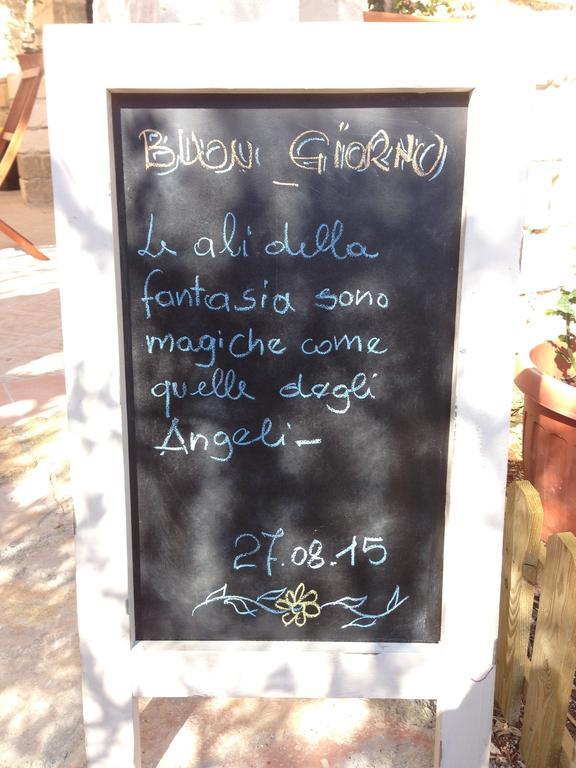 BUON GIORNO
Le ali della
fantasia sono
magiche come
quelle degli
Angeli-
27.08.15